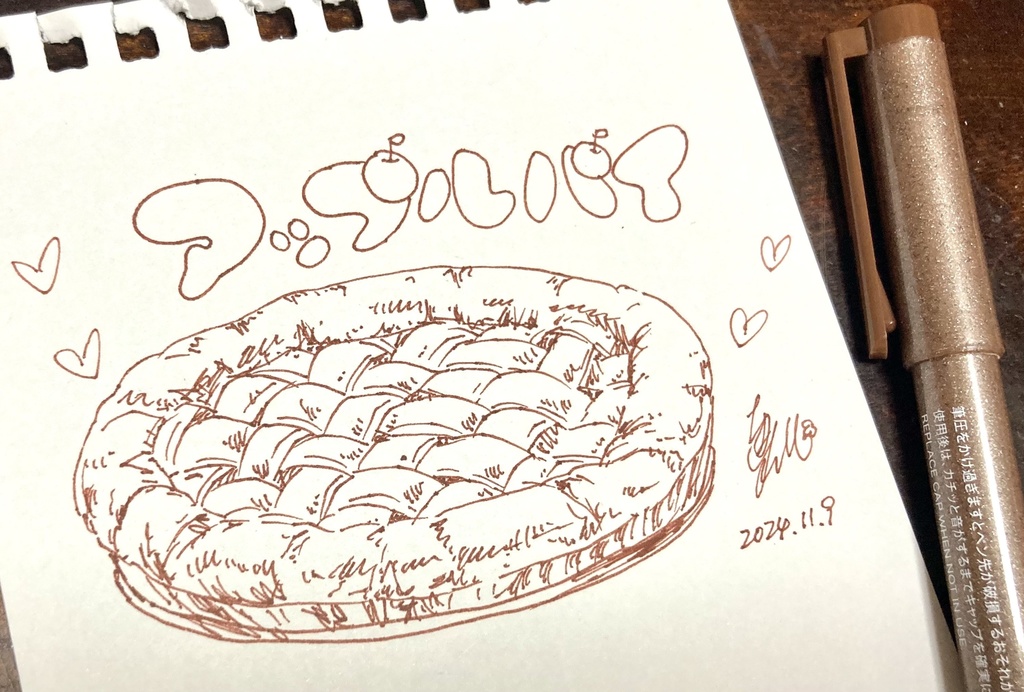 アップルパイ
2024.11.9
筆圧をかけ過ぎますとペン先が破損するおそれが
使用後は、カチッと音がするまでキャップを確実に
REPLACE CAP WHEN NOT IN USE